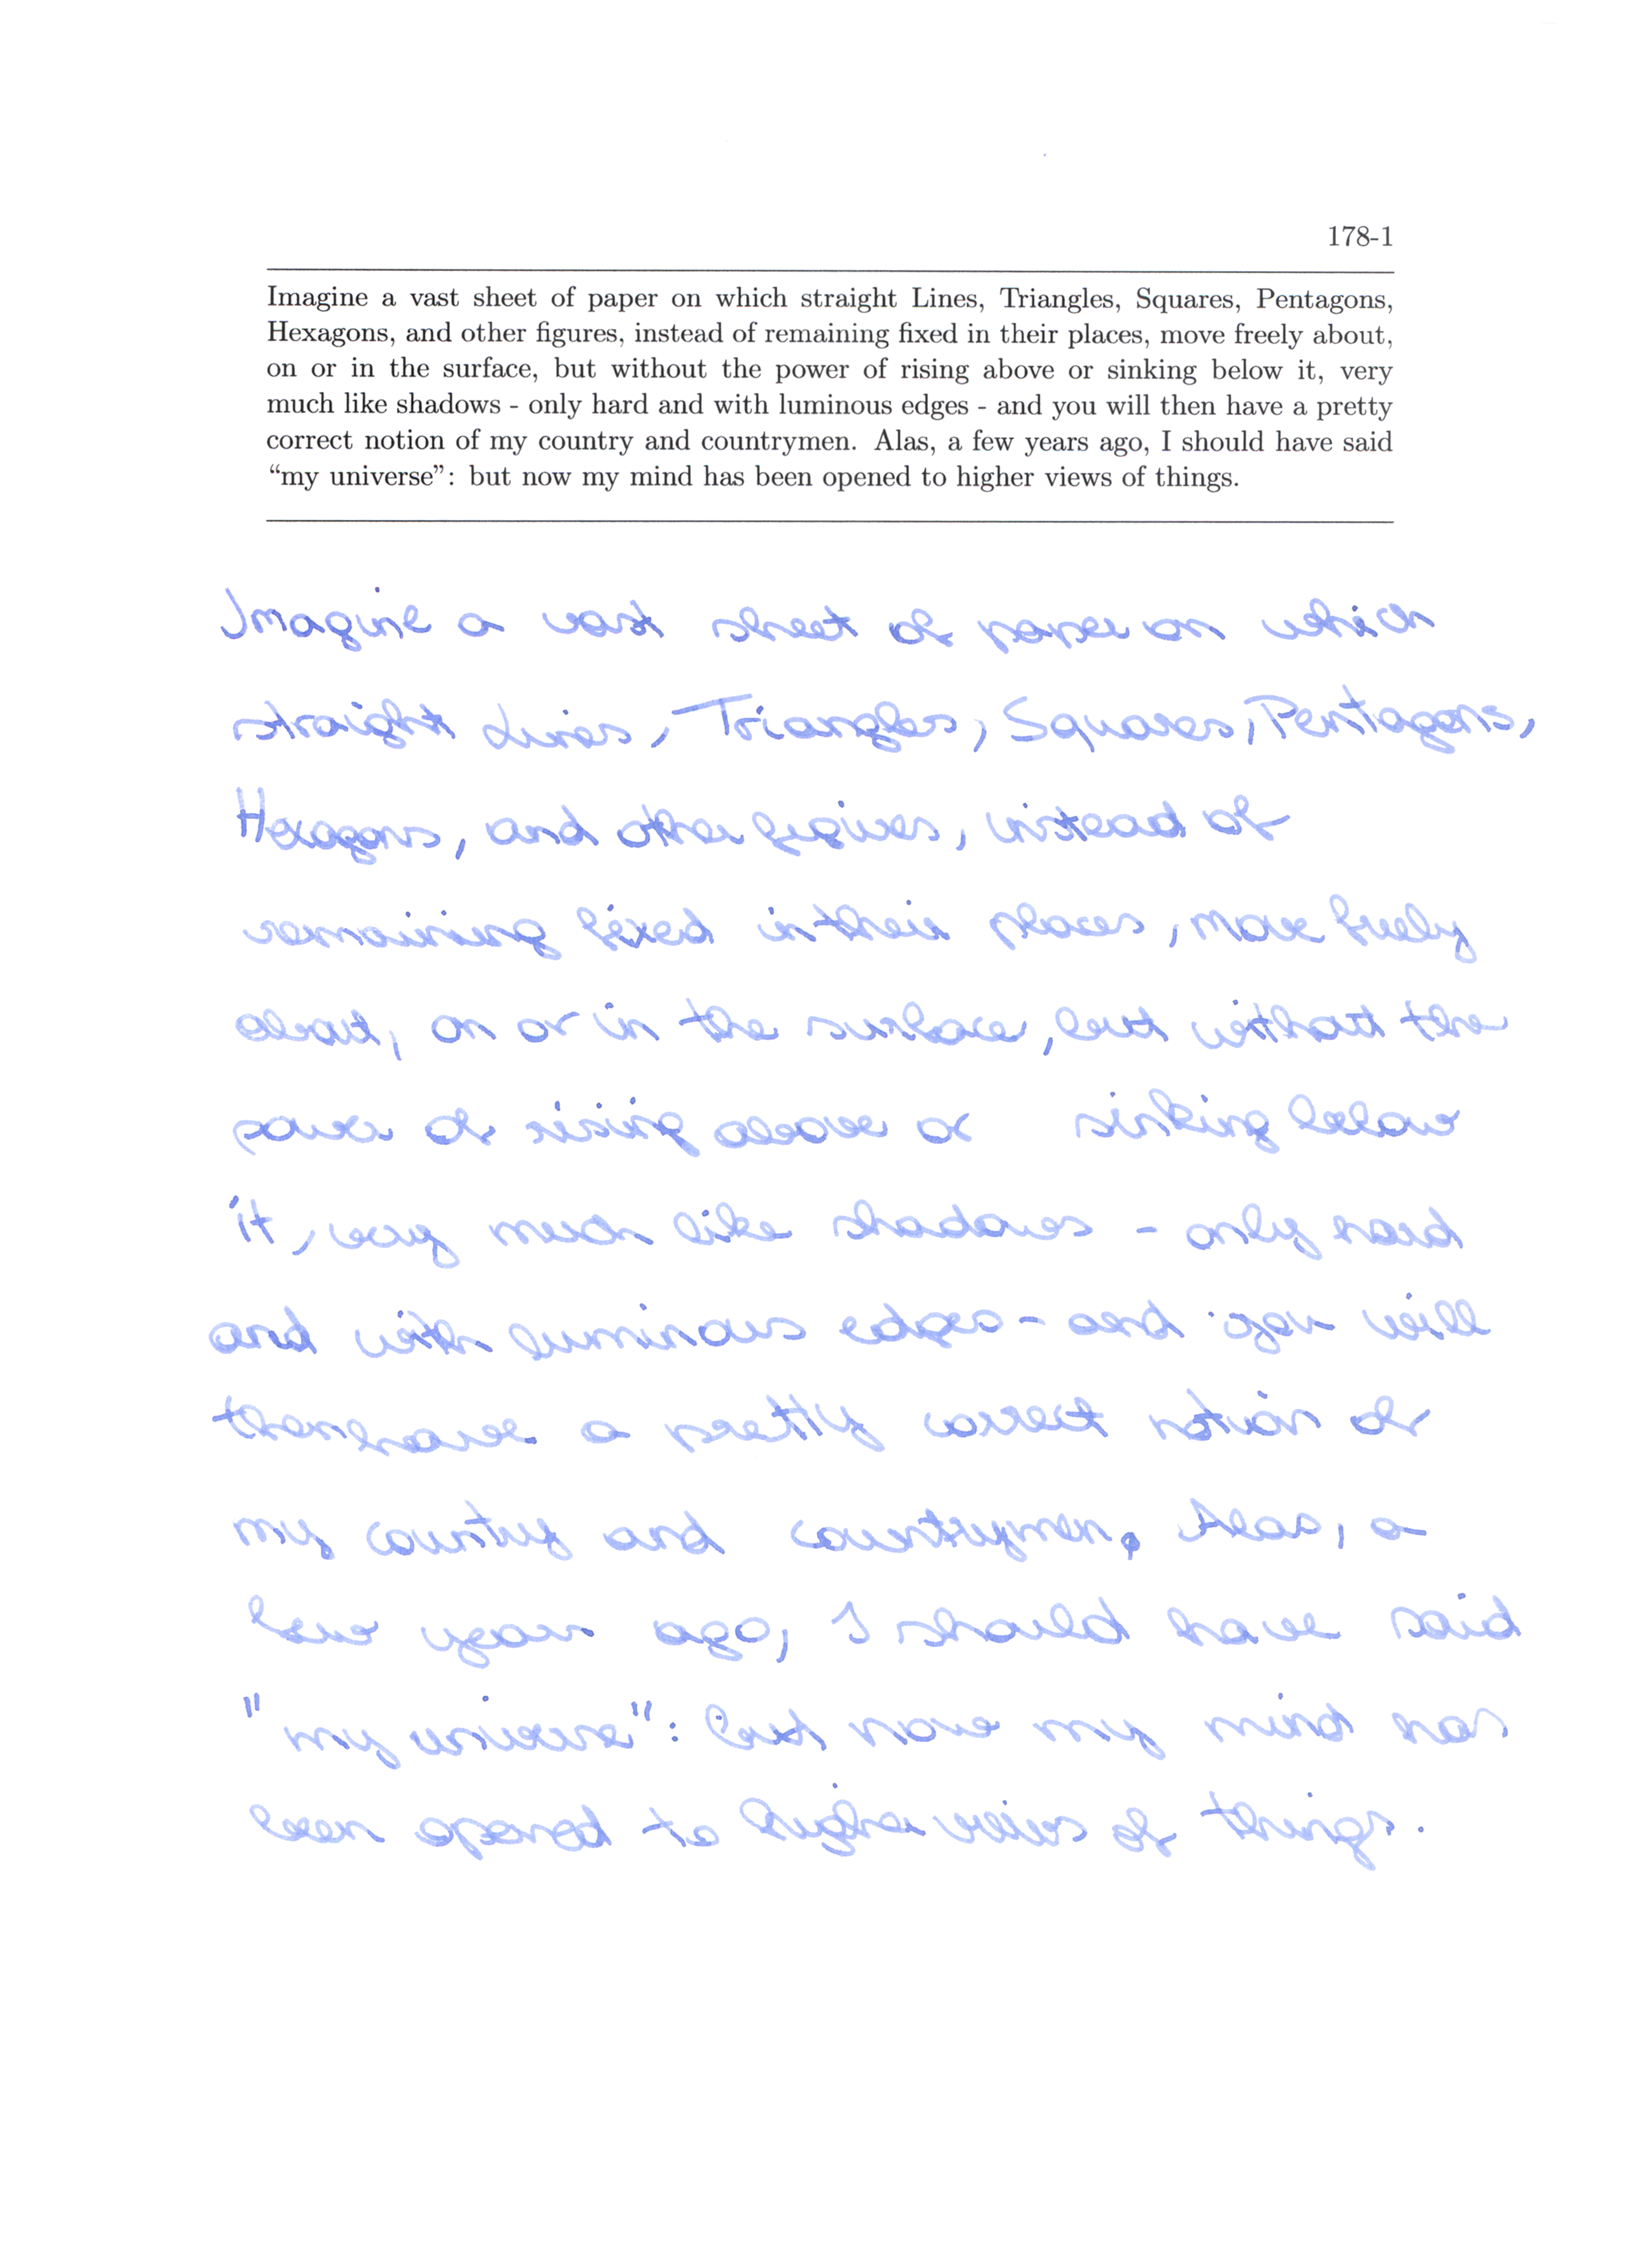 178-1
Imagine a vast sheet of paper on which straight Lines, Triangles, Squares, Pentagons,
Hexagons, and other figures, instead of remaining fixed in their places, move freely about,
on or in the surface, but without the power of rising above or sinking below it, very
much like shadows - only hard and with luminous edges - and you will then have a pretty
correct notion of my country and countrymen. Alas, a few years ago, I should have said
“my universe”: but now my mind has been opened to higher views of things.
Imagine a vast sheet of paper on which
straight Lines, Triangles, Squares, Pentagons,
Hexagons, and other figures, instead of
remaining fixed in their places, move freely
about, on or in the surface, but without the
power of rising above or sinking below
it, very much like shadows - only hard
and with luminous edges - and you will
then have a pretty correct notion of
my country and countrymen. Alas, a
few years ago, I should have said
"my universe": but now my mind has
been opened to higher views of things.